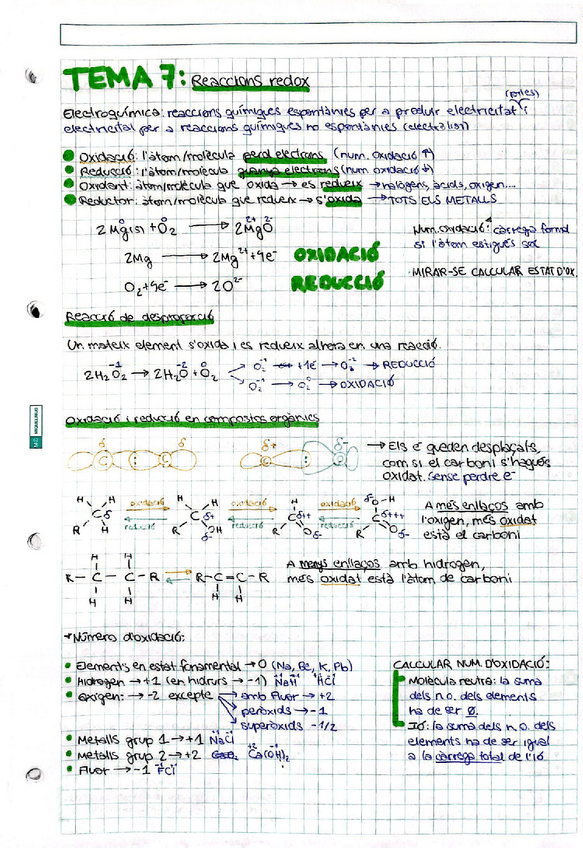 TEMA 7: Reaccions redox
(piles)
Electroquímica: reaccions químiques espontànies per a produir electricitat i
electricitat per a reaccions químiques no espontànies (electròlisi)
Oxidació: l'àtom/molècula perd electrons (num. oxidació ↑)
Reducció: l'àtom/molècula guanya electrons (num oxidació ↓)
Oxidant: àtom/molècula que oxida → es redueix → halògens, àcids, oxigen....
Reductor: àtom/molècula que redueix → s'oxida → TOTS ELS METALLS
2Mg(s) + O₂ → 2MgO
2Mg → 2Mg²⁺ + 4e⁻ OXIDACIÓ
O₂ + 4e⁻ → 2O²⁻ REDUCCIÓ
Num. oxidació: càrrega formal
si l'àtom estigués sol
MIRAR-SE CALCULAR ESTAT D'OX.
Reacció de desproporció
Un mateix element s'oxida i es redueix alhora en una reacció.
2H₂O₂ → 2H₂O + O₂
→ REDUCCIÓ
→ OXIDACIÓ
Oxidació i reducció en compostos orgànics
δ δ δ+ δ-
C C C
→ Els e⁻ queden desplaçats,
com si el carboni s'hagués
oxidat. Sense perdre e⁻
oxidació oxidació oxidació
reducció reducció reducció
A més enllaços amb
l'oxigen, més oxidat
està el carboni
H H
R-C-C-R R-C=C-R
H H H H
A menys enllaços amb hidrogen,
més oxidat està l'àtom de carboni
*Número d'oxidació:
Elements en estat fonamental → 0 (Na, Fe, K, Pb)
Hidrogen → +1 (en hidrurs → -1) NaH HCl
Oxigen: → -2 excepte → amb fluor → +2
→ peròxids → -1
→ superòxids -1/2
Metalls grup 1 → +1 NaCl
Metalls grup 2 → +2 Ca(OH)₂
Fluor → -1 FCl
CALCULAR NUM. D'OXIDACIÓ:
Molècula neutra: la suma
dels n.o. dels elements
ha de ser 0.
Ió: la suma dels n.o. dels
elements ha de ser igual
a la càrrega total de l'ió
MIQUELRIUS